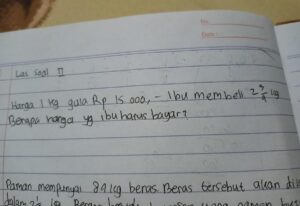 No.
Date:
Las Soal II
Harga 1 kg gula Rp 15.000,- Ibu membeli 2 3/4 kg
Berapa harga yg ibu harus bayar?
Paman mempunyai 84 kg beras. Beras tersebut akan
dalam